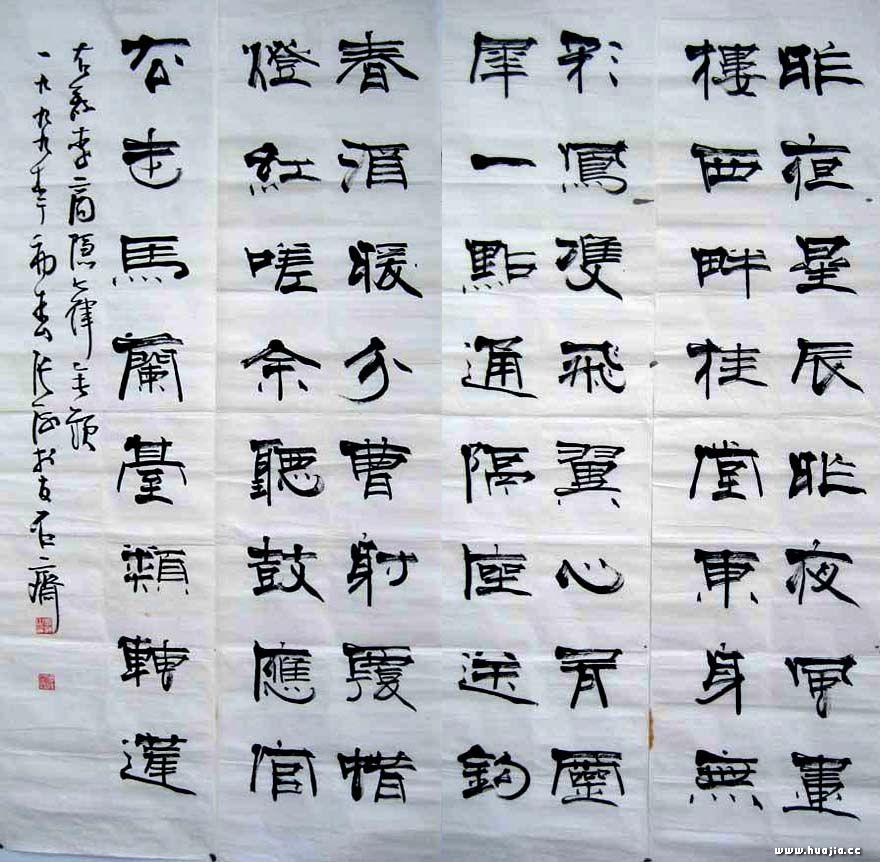 昨夜星辰昨夜風畫
樓西畔桂堂東身無
彩鳳雙飛翼心有靈
犀一點通隔座送鈎
春酒暖分曹射覆蜡
燈紅嗟余聽鼓應官
去走馬蘭臺類轉蓬
右录李商隱七律無題
一九九九年初春
www.huajia.cc